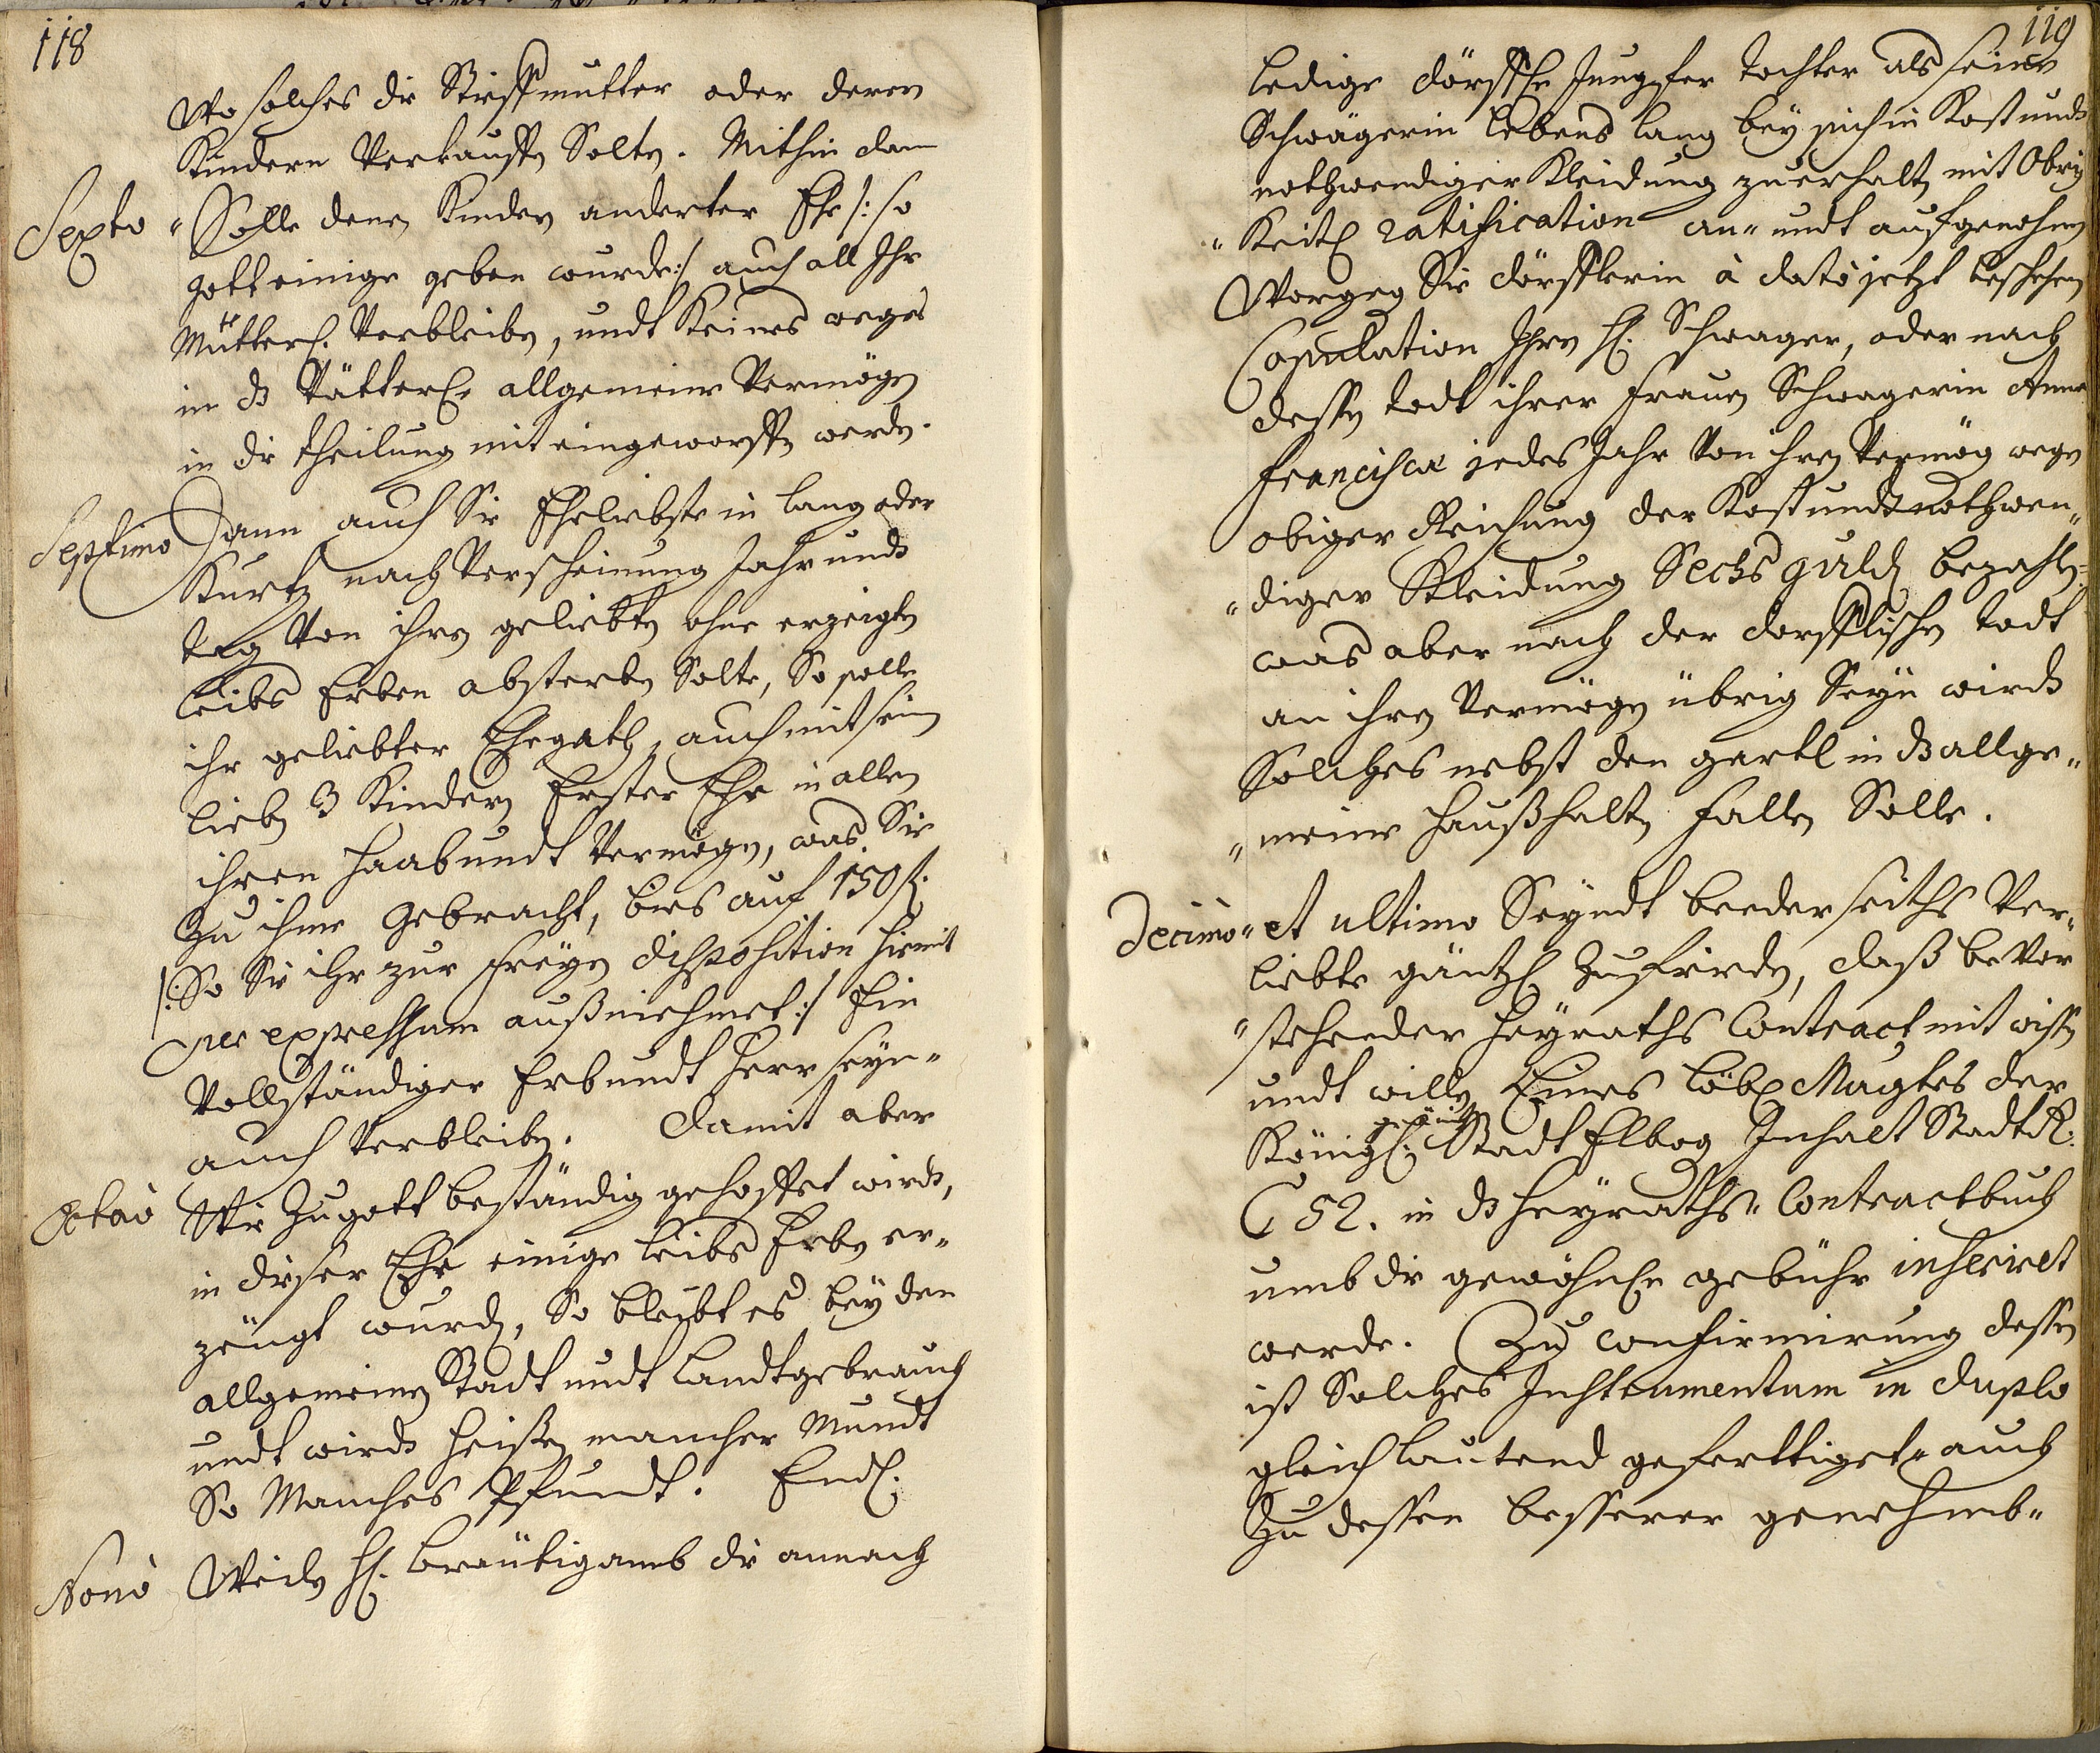 118
Wo solches die Stieffmutter oder deren
Kindern Verkauffen Solten. Mithin dan
Sexto Solle denen Kindern anderter Ehe /: so
gott einige geben wurde :/ auch all Ihr
Mütterl. Verbleiben, undt Keines weges
in dz Vätterl. allgemeine Vermögen
in die theilung mit eingeworffen werden.
Septimo Dann auch Sie Eheliebste in lang oder
Kurtz nach Verscheinung Jahr undt
tag Von ihren geliebten ohne erzeigten
leibs Erben absterben Solte, So solle
ihr geliebter Ehegath, auch mit seinen
lieben 3 Kindern Erster Ehe in allen
ihren Haab undt Vermögen, was Sie
Zu ihme Gebracht, bies auf 150 f.
/: So Sie ihr zur freyen disposition hiemit
per expressum außniehmet :/ Ein
Vollständiger Erb undt Herr seyn"
auch Verbleiben. Damit aber
Octavo Wie Zu gott beständig gehoffet wirdt,
in dieser Ehe einige leibs Erben er"
zeugt wurden, So bleibt es bey den
allgemeinen Stadt undt Landtgebrauch
undt wirdt heißen mancher Mundt
So Manches Pfundt. Endl.
Nonò Weilen H. bräutigamb die annach
119
ledige dörffl. Jungfer tochter als seine
Schwägerin lebens lang bey sich in Kost undt
nothwendiger Kleidung zu erhalten mit Obrig
"Keitl. ratification an" undt aufgenohmen
Worgegen Sie dörfflerin à dato jetzt beschehenen
Copulation Ihren H. Schwager, oder nach
dessen todt ihrer Frauen Schwägerin Anna
Francisca jedes Jahr Von ihren Vermögen wegen
obiger Reichung der Kost undt nothwen"
"diger Kleidung Sechs gulden bezahlen
was aber nach der dorfflischen todt
an ihren Vermögen übrig Seyn wirdt
Solches nebst den gartl in dz allge"
"meine haußhalten fallen Solle.
Decimo" et ultimo Seyndt beederseiths Ver"
liebte gäntzl. Zufrieden, daß beVor
"stehender Heyraths Contract mit wissen
undt willen Eines löbl. Magtes der
Königl. Stadt Elbogen Inhalt StadtR.
C 52. in dz Heyraths" Contractbuch
umb die gewöhnl. gebühr inserirt
werde. Zu confirmirung dessen
ist Solches Instrumentum in duplo
gleichlautend gefertiget" auch
Zu dessen besserer genehmb"